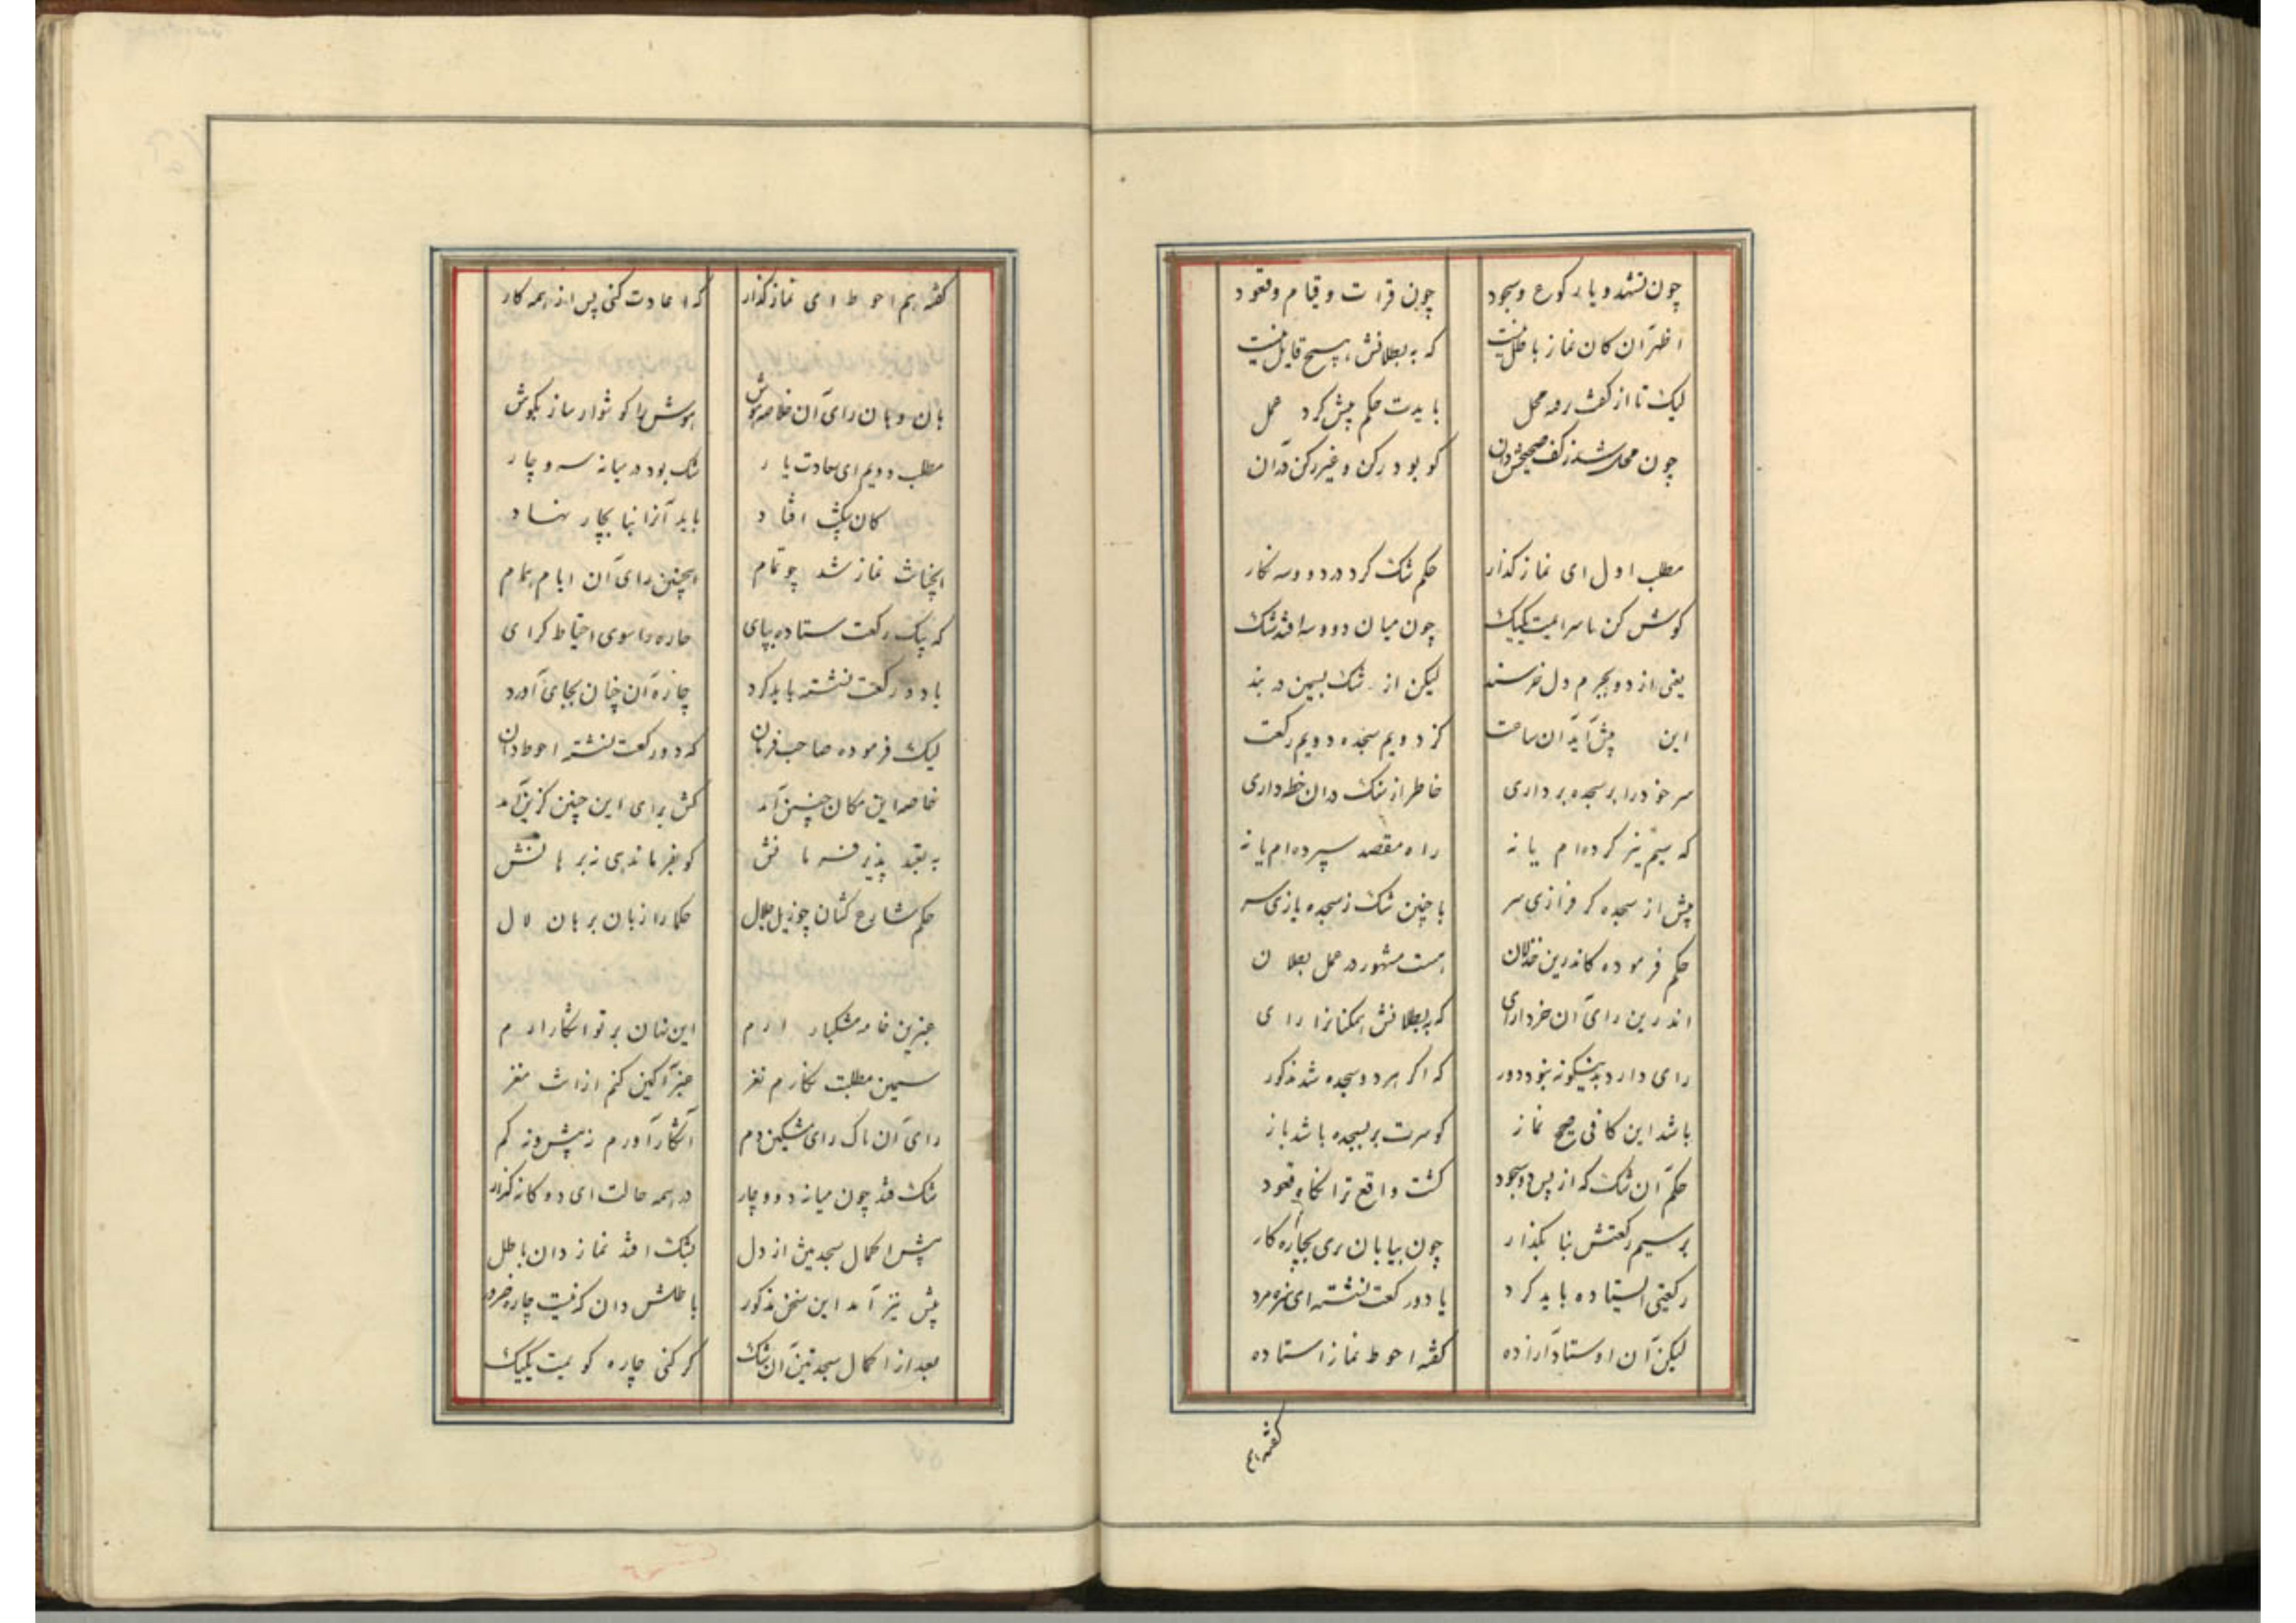 چون تشهد و یا رکوع و سجود چون قرائت و قیام و قعود
اظهر آن کان نماز باطل نیست که به بطلانش هیچ قایل نیست
لیک تا از کفت رمه محل بایدت حکم پیش کرد عمل
چون محل شد ز کف صحیحش دان کو بود رکن و غیر رکن در آن
مطلب اول ای نماز گذار حکم شک کرد در دو و سه نگار
گوش کن یکیک چون میان دو و سه افتد شک
یعنی از دو بجرم دل خرسند لیکن از شک بسیمین در بند
این پیش آید آن ساعت کز دویم سجده دویم رکعت
سر خود را بر سجده برداری خاطر از شک در آن خطه داری
که سیم نیز کرده‌ام یا نه راه مقصد سپرده‌ام یا نه
پیش از سجده گر فرازی سر با چنین شک ز سجده یازی سر
حکم فرموده کاندرین خذلان هست مشهور در عمل بطلان
اندرین رای آن خرد آرای که به بطلانش همکنانرا رای
رای دارد بدینگونه نبود دور که اگر هر دو سجده شد مذکور
باشد این کافی صح نماز کو سرت بر بسجده باشد باز
حکم آن شک که از پس دو سجود گشت واقع ترا بگاه قعود
بر سیم رکعتش بنا بگذار چون بپایان بری بچاره کار
رکعتی ایستاده باید کرد یا دو رکعت نشسته ای سره مرد
لیکن آن اوستاد آزاده گفته احوط نماز استاده
گفته هم
گفته هم احوط ای نماز گذار که اعادت کنی پس از همه کار
هان و هان رای آن خلاصه هوش هوش را گوشوار ساز بگوش
مطلب دویم ای سعادت یار شک بود در میانه سه و چار
کان بشک افتاد باید آنرا بنا بچار نهاد
انچنانت نماز شد چو تمام همچنین رای آن امام همام
که یک رکعت ستاده بپای چاره را سوی احتیاط گرای
یا دو رکعت نشسته باید کرد چاره آن چنان بجای آورد
لیک فرموده صاحب فرمان که دو رکعت نشسته احوط دان
خاصه این مکان چنین آمد کش برای این چنین گزین آمد
به تعبد پذیر فرمانش کو بفرماندهی نه برهانش
حکم شارع کشان چو نیل جلال حکما را زبان برهان لال
عنبرین خامه مشکبار آرم این نهان بر تو آشکار آرم
سیمین مطلبت نگارم نغز عنبر آگین کنم ازانت مغز
رای آن پاک رای مشکین دم آشکار آورم ز بیش و ز کم
شک فتد چون میانه دو و چار در همه حالت ای دوگانه گزار
پیش از اکمال سجدتین از دل بشک افتد نماز دان باطل
پیش نیز آمد این سخن مذکور باطلش دان که نیست چاره ضرور
بعد از اکمال سجدتین آن شک گر کنی چاره یکیک